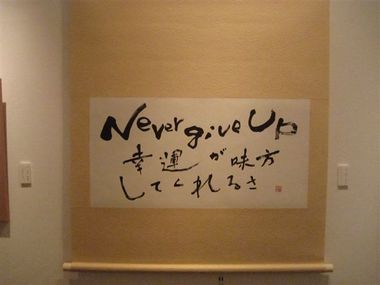 Never give Up
幸運が味方
してくれるさ